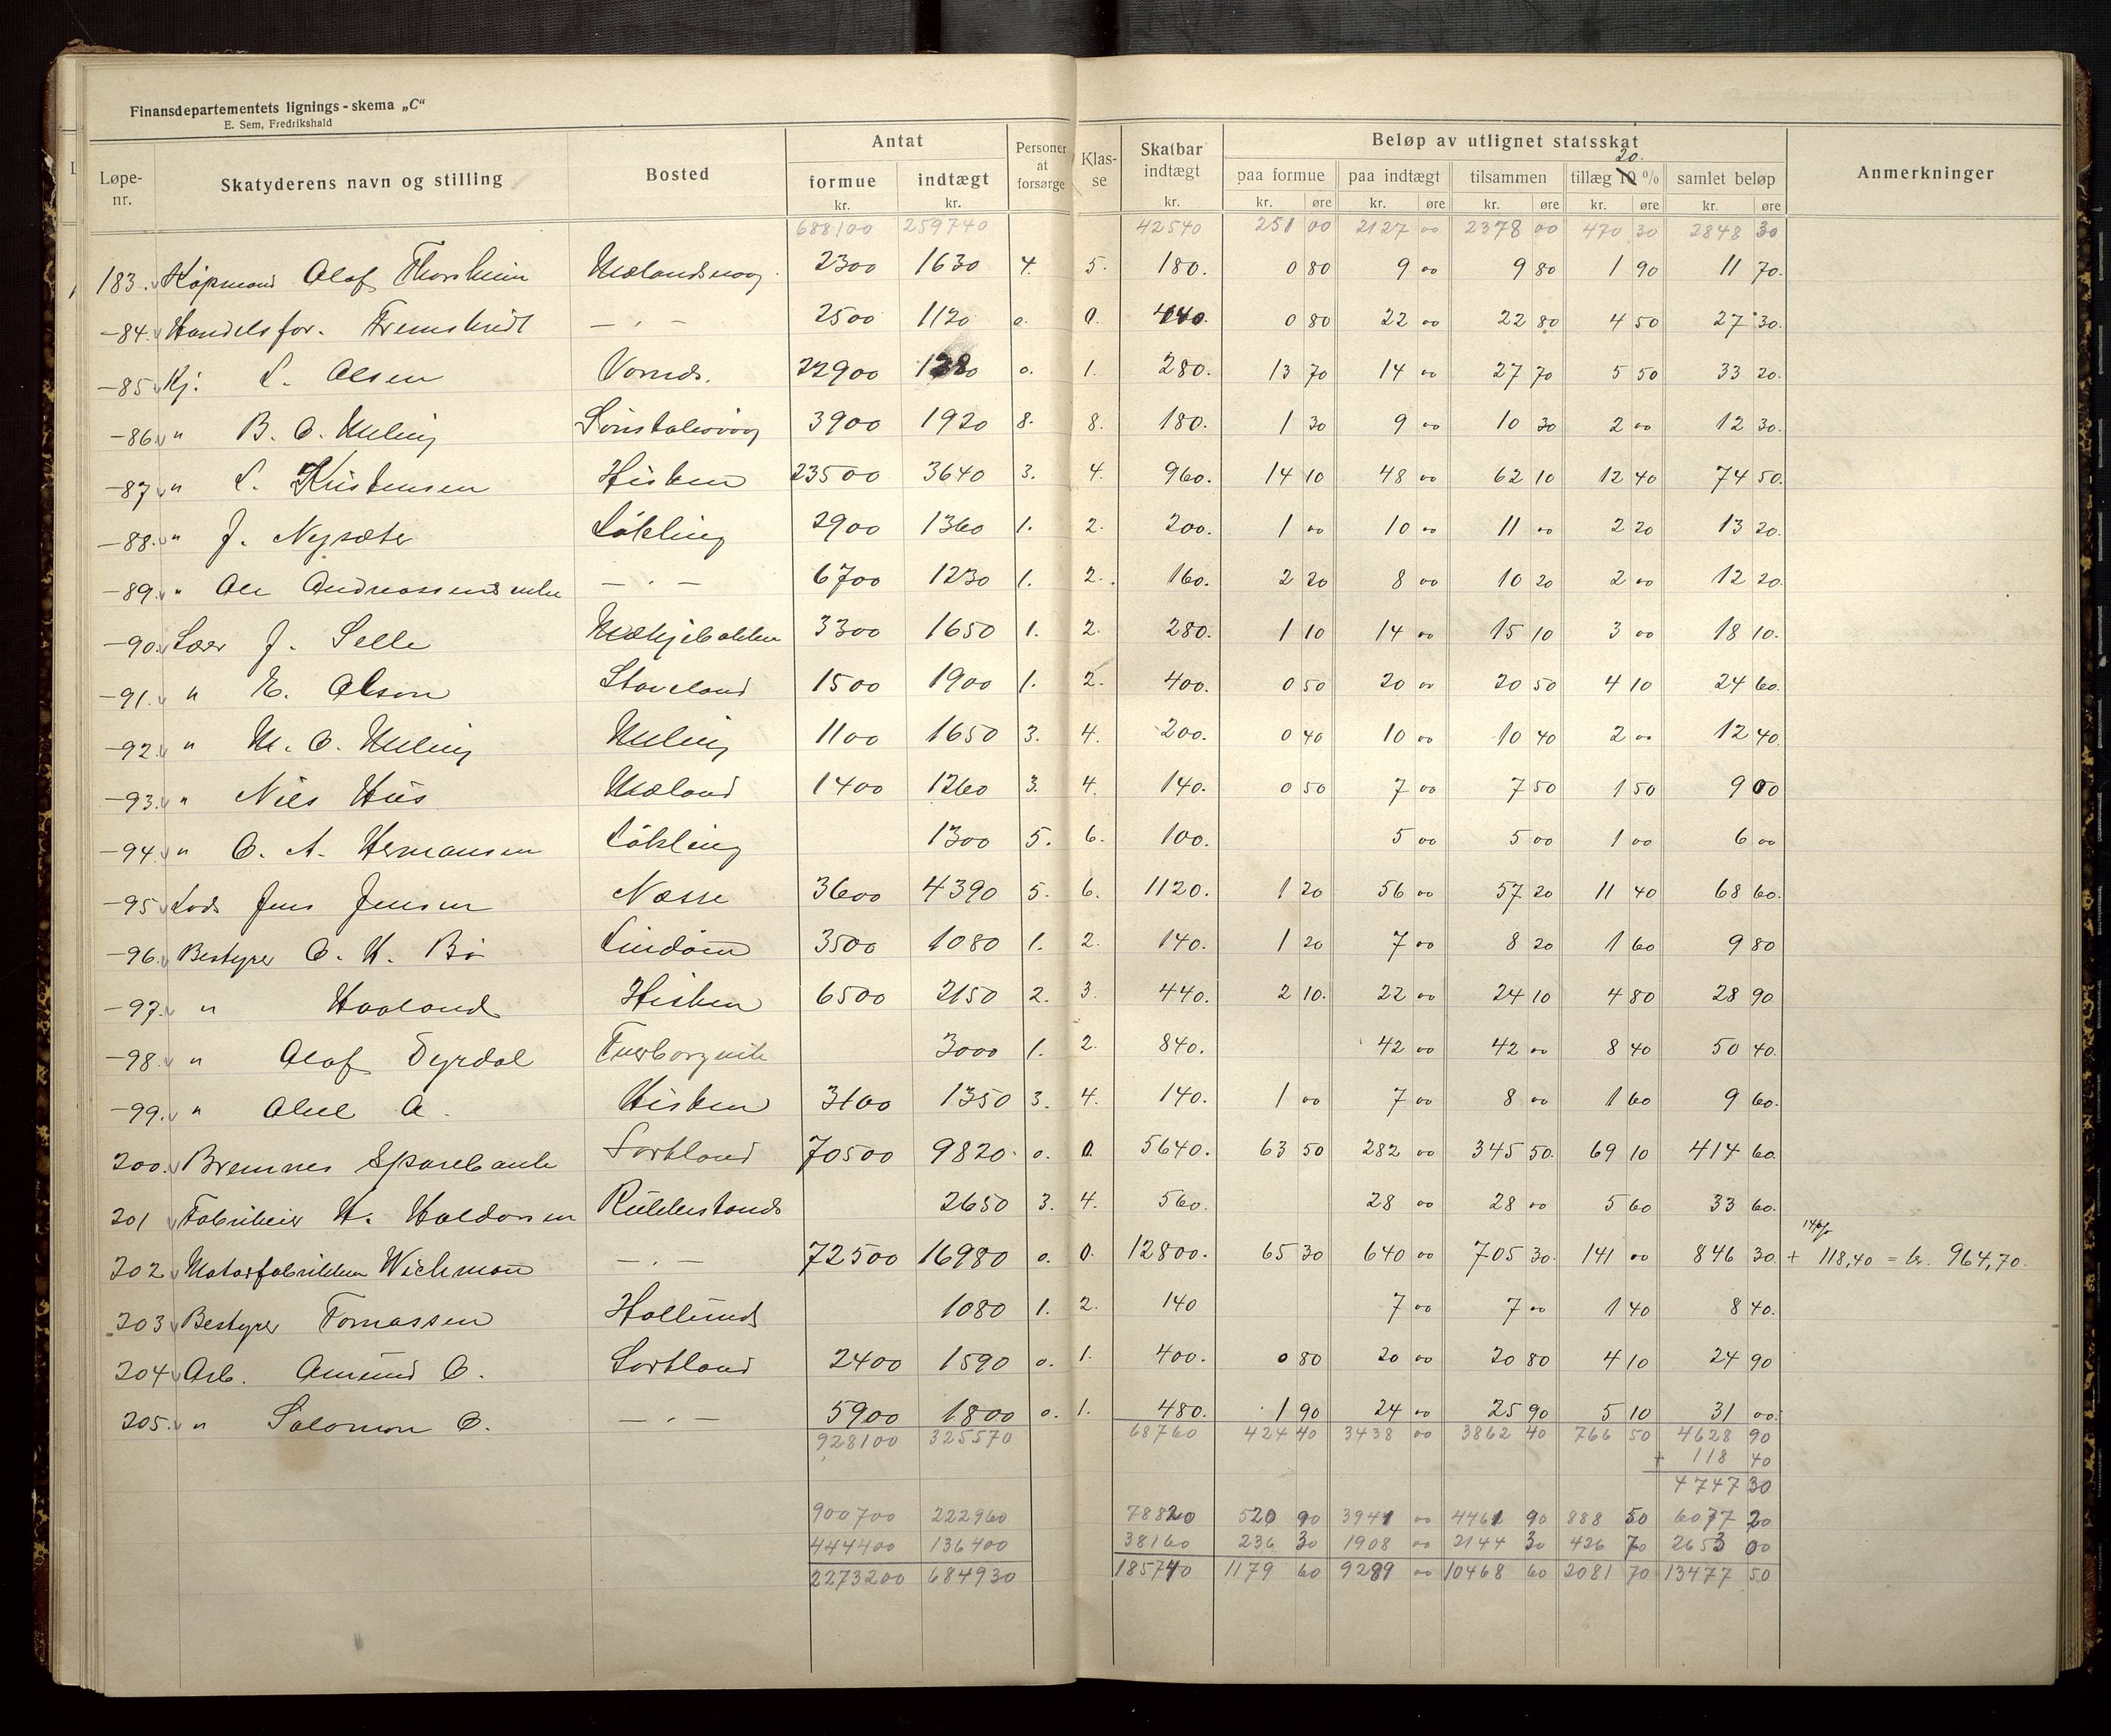 Finansdepartementets lignings-skema „C“
E. Sem, Fredrikshald
Løpe-nr. Skatyderens navn og stilling Bosted Antat formue kr. indtægt kr. Personer at forsørge Klas-se Skatbar indtægt kr. Beløp av utlignet statsskat paa formue kr. øre paa indtægt kr. øre tilsammen kr. øre tillæg 10 20. % kr. øre samlet beløp kr. øre Anmerkninger
688100 259740 42540 251 00 2127 00 2378 00 470 30 2848 30
183. Kjøpmand Olaf Thorsheim 2300 1630 4. 5. 180. 0 80 9 00 9 80 1 90 11 70.
-84. Handelsfor. Fremskridt — „ — 2500 1120 0. 0. 440. 0 80 22 00 22 80 4 50 27 30.
-85 Kj. L. Olsen Vornds. 22900 0. 1. 280. 13 70 14 00 27 70 5 50 33 20.
-86. " B. O. Meling 3900 1920 8. 8. 180. 1 30 9 00 10 30 2 00 12 30.
-87 " L. Kristensen Hisken 23500 3640 3. 4. 960. 14 10 48 00 62 10 12 40 74 50.
-88. " J. Nysæter Løkling 2900 1360 1. 2. 200. 1 00 10 00 11 00 2 20 13 20.
-89. " Ole Andreassens enke — „ — 6700 1230 1. 2. 160. 2 20 8 00 10 20 2 00 12 20.
-90. Lærer J. Selle Mækjebakken 3300 1650 1. 2. 280. 1 10 14 00 15 10 3 00 18 10.
-91. " E. Olson Staveland 1500 1900 1. 2. 400. 0 50 20 00 20 50 4 10 24 60.
-92. " M. O. Meling Meling 1100 1650 3. 4. 200. 0 40 10 00 10 40 2 00 12 40.
-93. " Nils Hus Mæland 1400 1260 3. 4. 140. 0 50 7 00 7 50 1 50 9 00
-94. " O. A. Hermansen Løkling 1300 5. 6. 100. 5 00 5 00 1 00 6 00
-95 Lods Jens Jensen Næsse 3600 4390 5. 6. 1120. 1 20 56 00 57 20 11 40 68 60.
-96. Bestyrer O. H. Bø Lindøen 3500 1080 1. 2. 140. 1 20 7 00 8 20 1 60 9 80
-97. " Haaland Hisken 6500 2150 2. 3. 440. 2 10. 22 00 24 10 4 80 28 90
-98. " Olaf Dyrdal 3000 1. 2. 840. 42 00 42 00 8 40 50 40.
-99. " O. Hisken 3100 1350 3. 4. 140. 1 00 7 00 8 00 1 60 9 60.
200. Bremnes Sparebank Sortland 70500 9820. 0. 0. 5640. 63 50 282 00 345 50. 69 10 414 60.
201 Fabrikeier H. Haldorsen Rubbestands 2650 3. 4. 560. 28 00 28 00 5 60 33 60.
202 Motorfabrikken Wichmann — „ — 72500 16980 0. 0. 12800. 65 30 640 00 705 30. 141 00 846 30. + 14% 118,40 = kr. 964,70.
203 Bestyrer Tomassen Hollunds 1080 1. 2. 140 7 00 7 00 1 40 8 40.
204 Arb. Amund O. Sortland 2400 1590 0. 1. 400. 0 80 20 00 20 80 4 10 24 90
205. " Salomon O. — „ — 5900 1800 0. 1. 480. 1 90 24 00 25 90 5 10 31 00.
928100 325570 68760 424 40 3438 00 3862 40 766 50 4628 90
+ 118 40
4747 30
900700 222960 78820 520 90 3941 00 4461 90 888 50 6077 20
444400 136400 38160 236 30 1908 00 2144 30 426 70 2653 00
2273200 684930 185740 1179 60 9289 00 10468 60 2081 70 13477 50